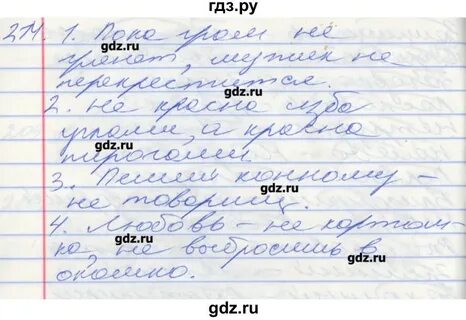 гдз.ру
274. 1. Пока гром не
грянет, мужик не
перекрестится.
2. Не красна изба
углами, а красна
пирогами.
3. Пеший конному –
не товарищ.
4. Любовь – не картош-
ка, не выбросишь в
окошко.
gdz.ru
gdz.ru
gdz.ru
gdz.ru
gdz.ru
gdz.ru
gdz.ru
gdz.ru